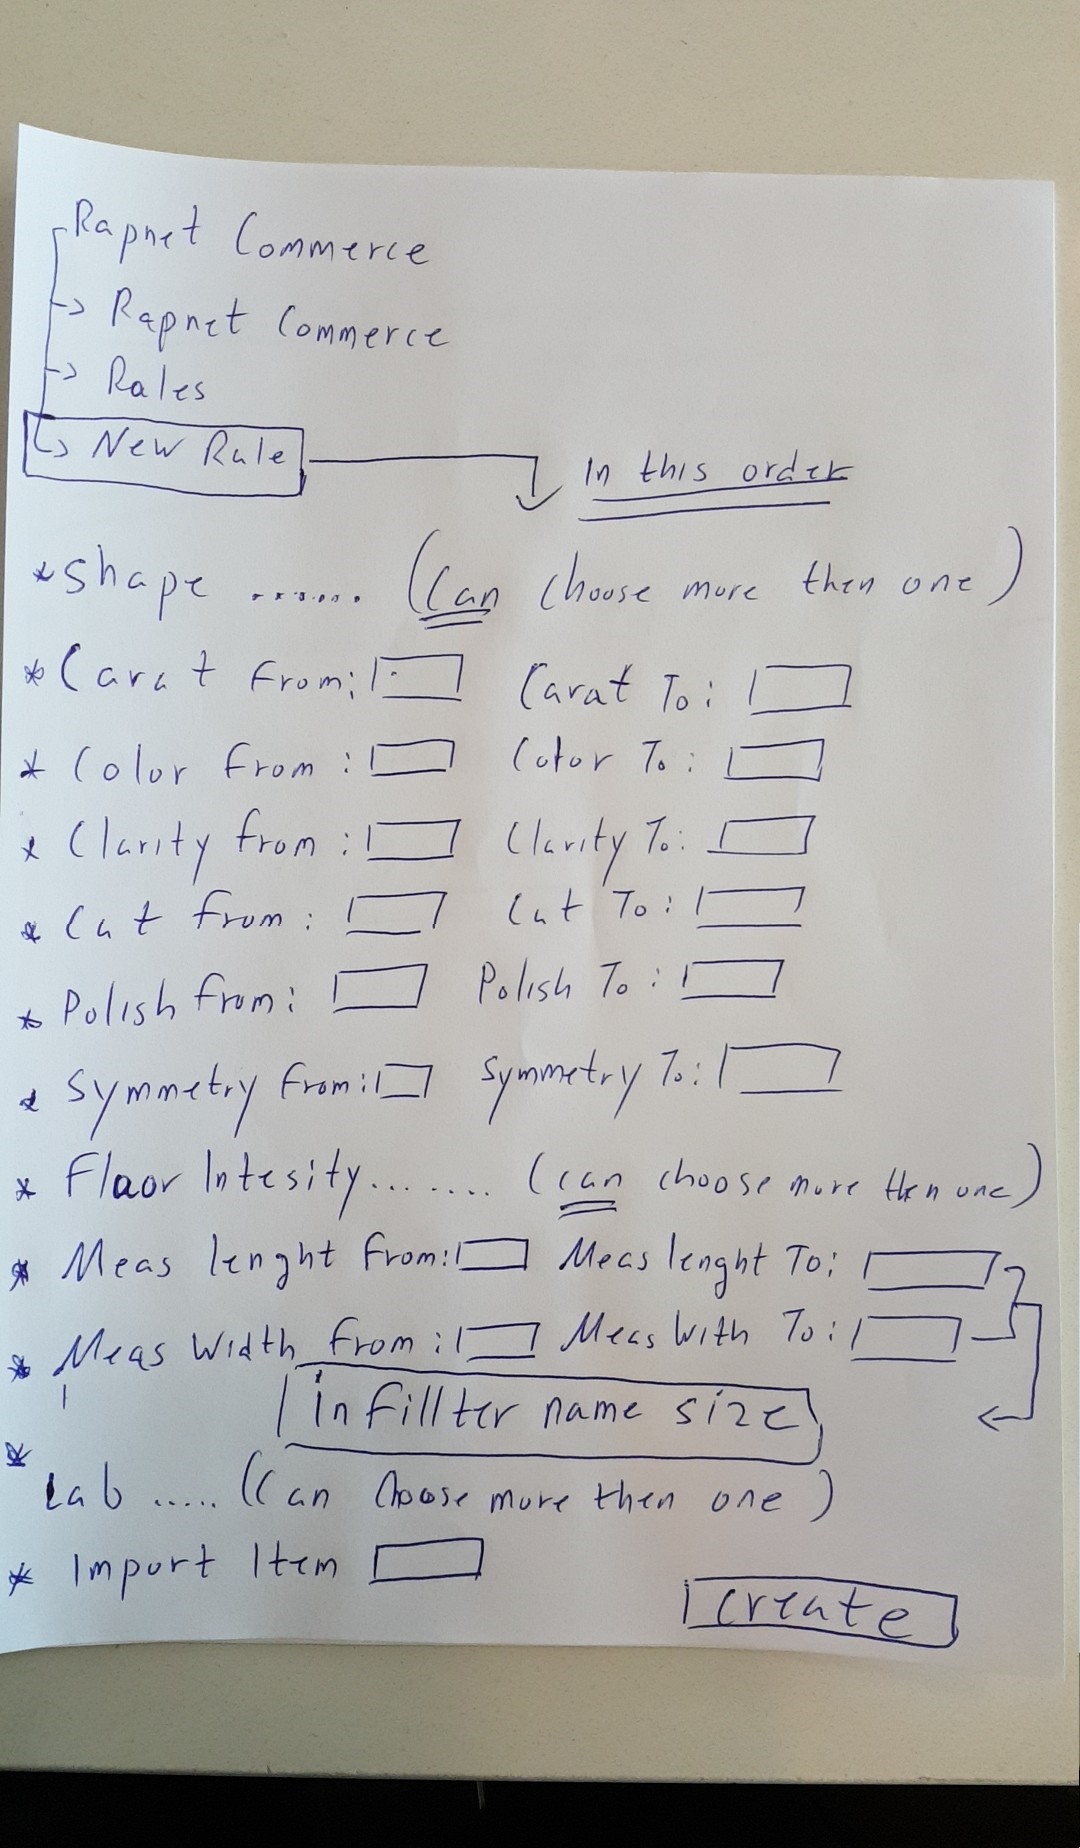 Rapnet Commerce
-> Rapnet Commerce
-> Rules
-> New Rule
In this order
* Shape ....... (Can choose more then one)
* Carat From: Carat To:
* Color from: Color To:
* Clarity from: Clarity To:
* Cut from: Cut To:
* Polish from: Polish To:
* Symmetry From: Symmetry To:
* Fluor Intesity........ (can choose more then one)
* Meas lenght From: Meas lenght To:
* Meas Width From: Meas With To:
in fillter name size
* Lab ..... (Can Choose more then one)
* Import Item
create